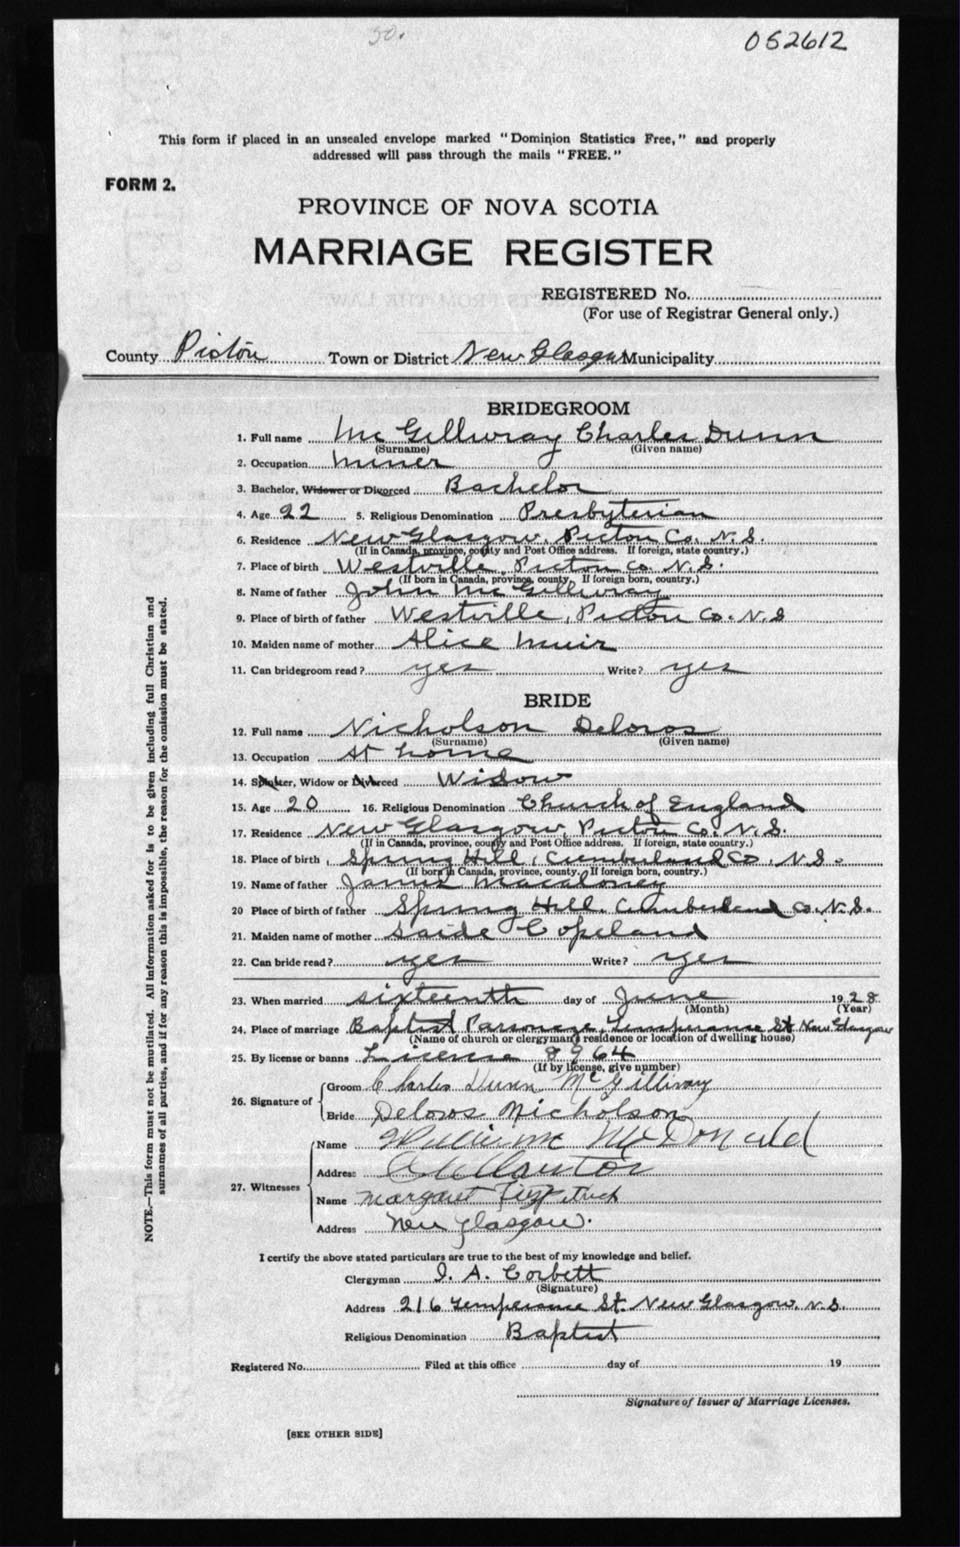 50.
052612
This form if placed in an unsealed envelope marked "Dominion Statistics Free," and properly
addressed will pass through the mails "FREE."
FORM 2.
PROVINCE OF NOVA SCOTIA
MARRIAGE REGISTER
REGISTERED No.
(For use of Registrar General only.)
County Pictou Town or District New Glasgow Municipality
BRIDEGROOM
1. Full name McGillivray Charles Dunn
(Surname) (Given name)
2. Occupation Miner
3. Bachelor, Widower or Divorced Bachelor
4. Age 22 5. Religious Denomination Presbyterian
6. Residence New Glasgow, Pictou Co. N.S.
(If in Canada, province, county and Post Office address. If foreign, state country.)
7. Place of birth Westville, Pictou Co. N.S.
(If born in Canada, province, county. If foreign born, country.)
8. Name of father John McGillivray
9. Place of birth of father Westville, Pictou Co. N.S
10. Maiden name of mother Alice Muir
11. Can bridegroom read? yes Write? yes
BRIDE
12. Full name Nicholson Deloros
(Surname) (Given name)
13. Occupation At home
14. Spinster, Widow or Divorced Widow
15. Age 20 16. Religious Denomination Church of England
17. Residence New Glasgow, Pictou Co. N.S.
(If in Canada, province, county and Post Office address. If foreign, state country.)
18. Place of birth Spring Hill, Cumberland Co, N.S.
(If born in Canada, province, county. If foreign born, country.)
19. Name of father James Macaloney
20 Place of birth of father Spring Hill, Cumberland Co. N.S.
21. Maiden name of mother Saide Copeland
22. Can bride read? yes Write? yes
23. When married sixteenth day of June 1928
(Month) (Year)
24. Place of marriage Baptist Parsonage, Temperance St New Glasgow
(Name of church or clergyman's residence or location of dwelling house)
25. By license or banns License 8964
(If by license, give number)
26. Signature of
Groom Charles Dunn McGillivray
Bride Deloros Nicholson
27. Witnesses
Name McDonald
Address
Name Margaret Fitzpatrick
Address New Glasgow.
I certify the above stated particulars are true to the best of my knowledge and belief.
Clergyman I. A. Corbett
(Signature)
Address 216 Temperance St. New Glasgow, N.S.
Religious Denomination Baptist
Registered No. Filed at this office day of 19
Signature of Issuer of Marriage Licenses.
[SEE OTHER SIDE]
NOTE.—This form must not be mutilated. All information asked for is to be given including full Christian and
surnames of all parties, and if for any reason this is impossible, the reason for the omission must be stated.